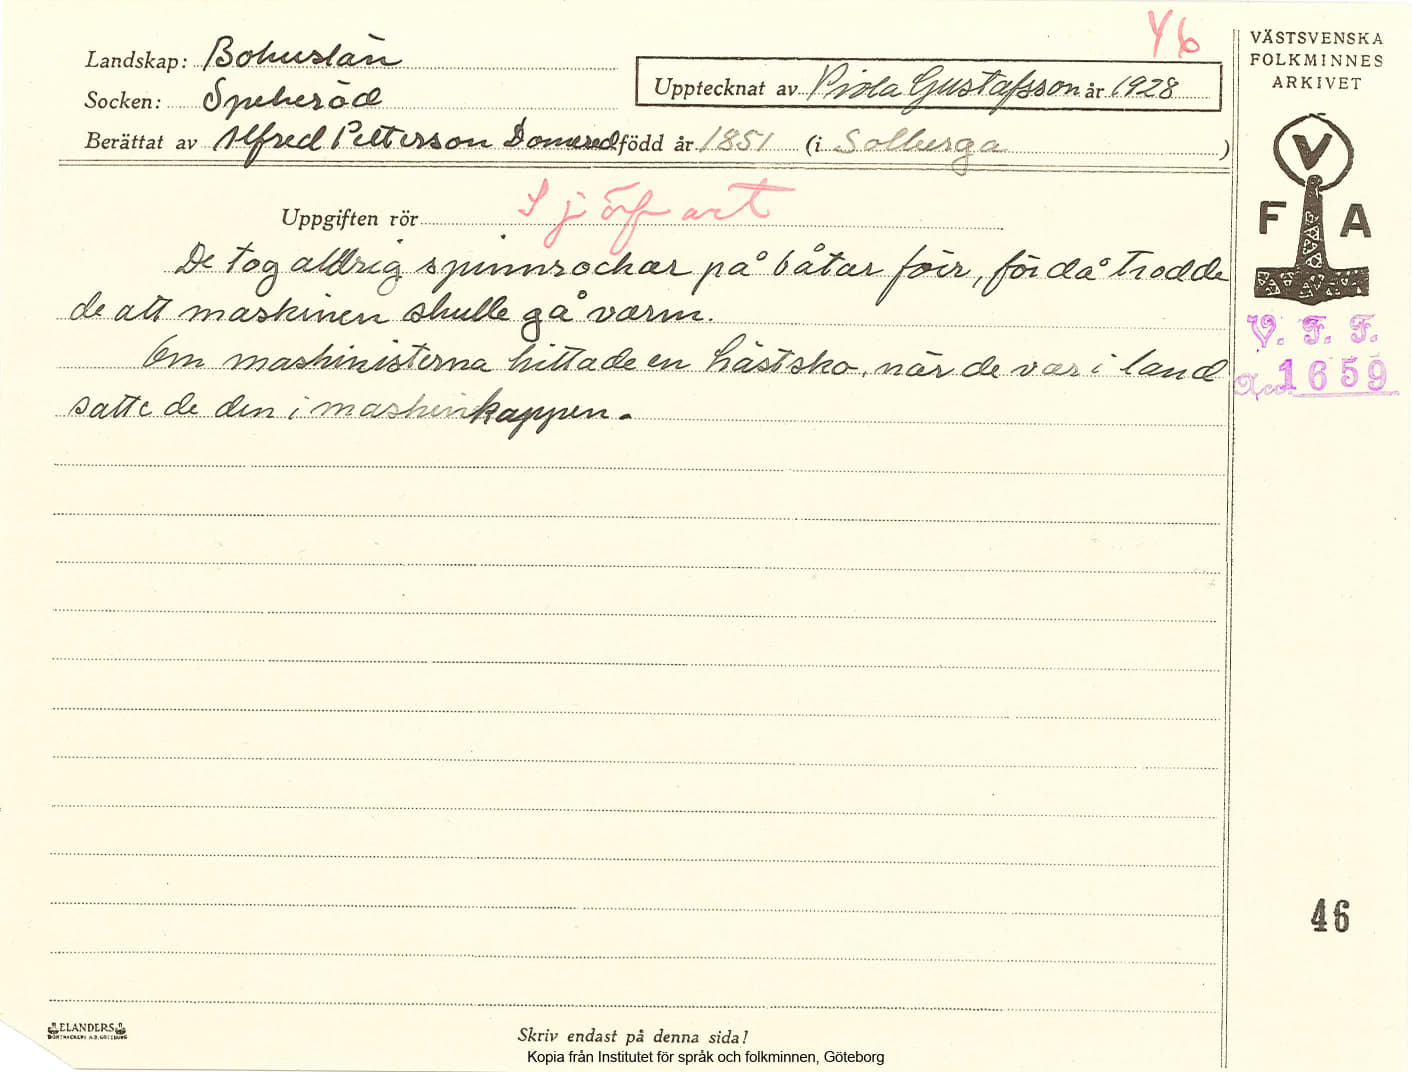 46
Landskap: Bohuslän
Socken: Spekeröd
Upptecknat av Viola Gustafsson år 1928
Berättat av Alfred Petterson Domered född år 1851 (i Solberga )
Uppgiften rör Sjöfart
De tog aldrig spinnrockar på båtar förr, för då trodde
de att maskinen skulle gå varm.
Om maskinisterna hittade en hästsko, när de var i land
satte de den i maskinkappen.
VÄSTSVENSKA
FOLKMINNES
ARKIVET
V
F A
V. F. F.
1659
46
ELANDERS
Skriv endast på denna sida!
Kopia från Institutet för språk och folkminnen, Göteborg